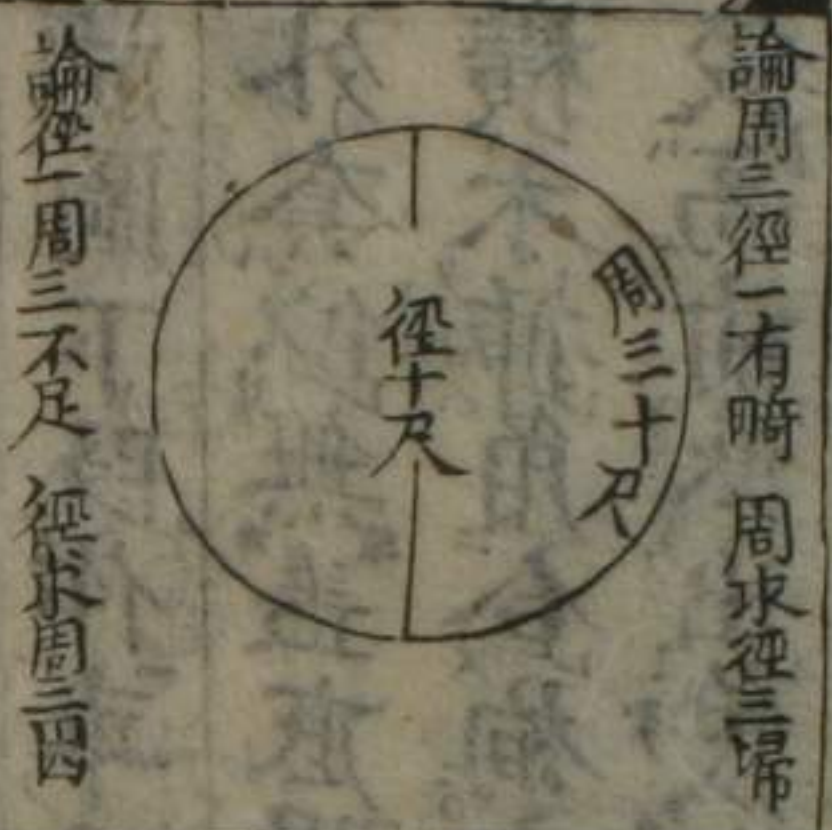 論周三徑一有畸 周求徑三埽
周三十尺
徑十尺
論徑一周三不足 徑求周三因